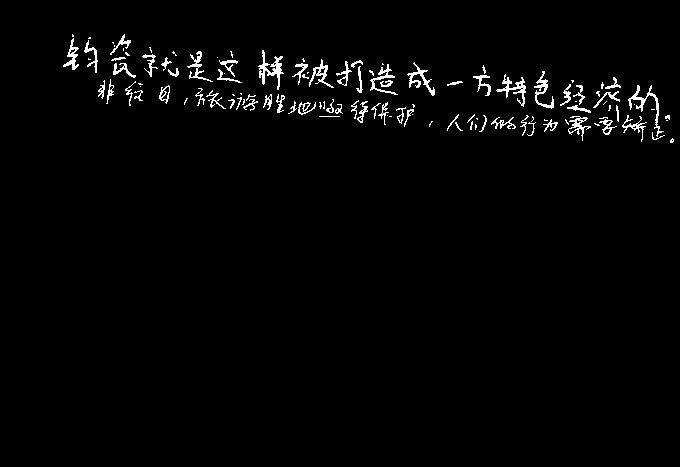 钧瓷就是这样被打造成一方特色经济的。
非经目,旅游胜地亟待保护,人们的行为需要矫正。